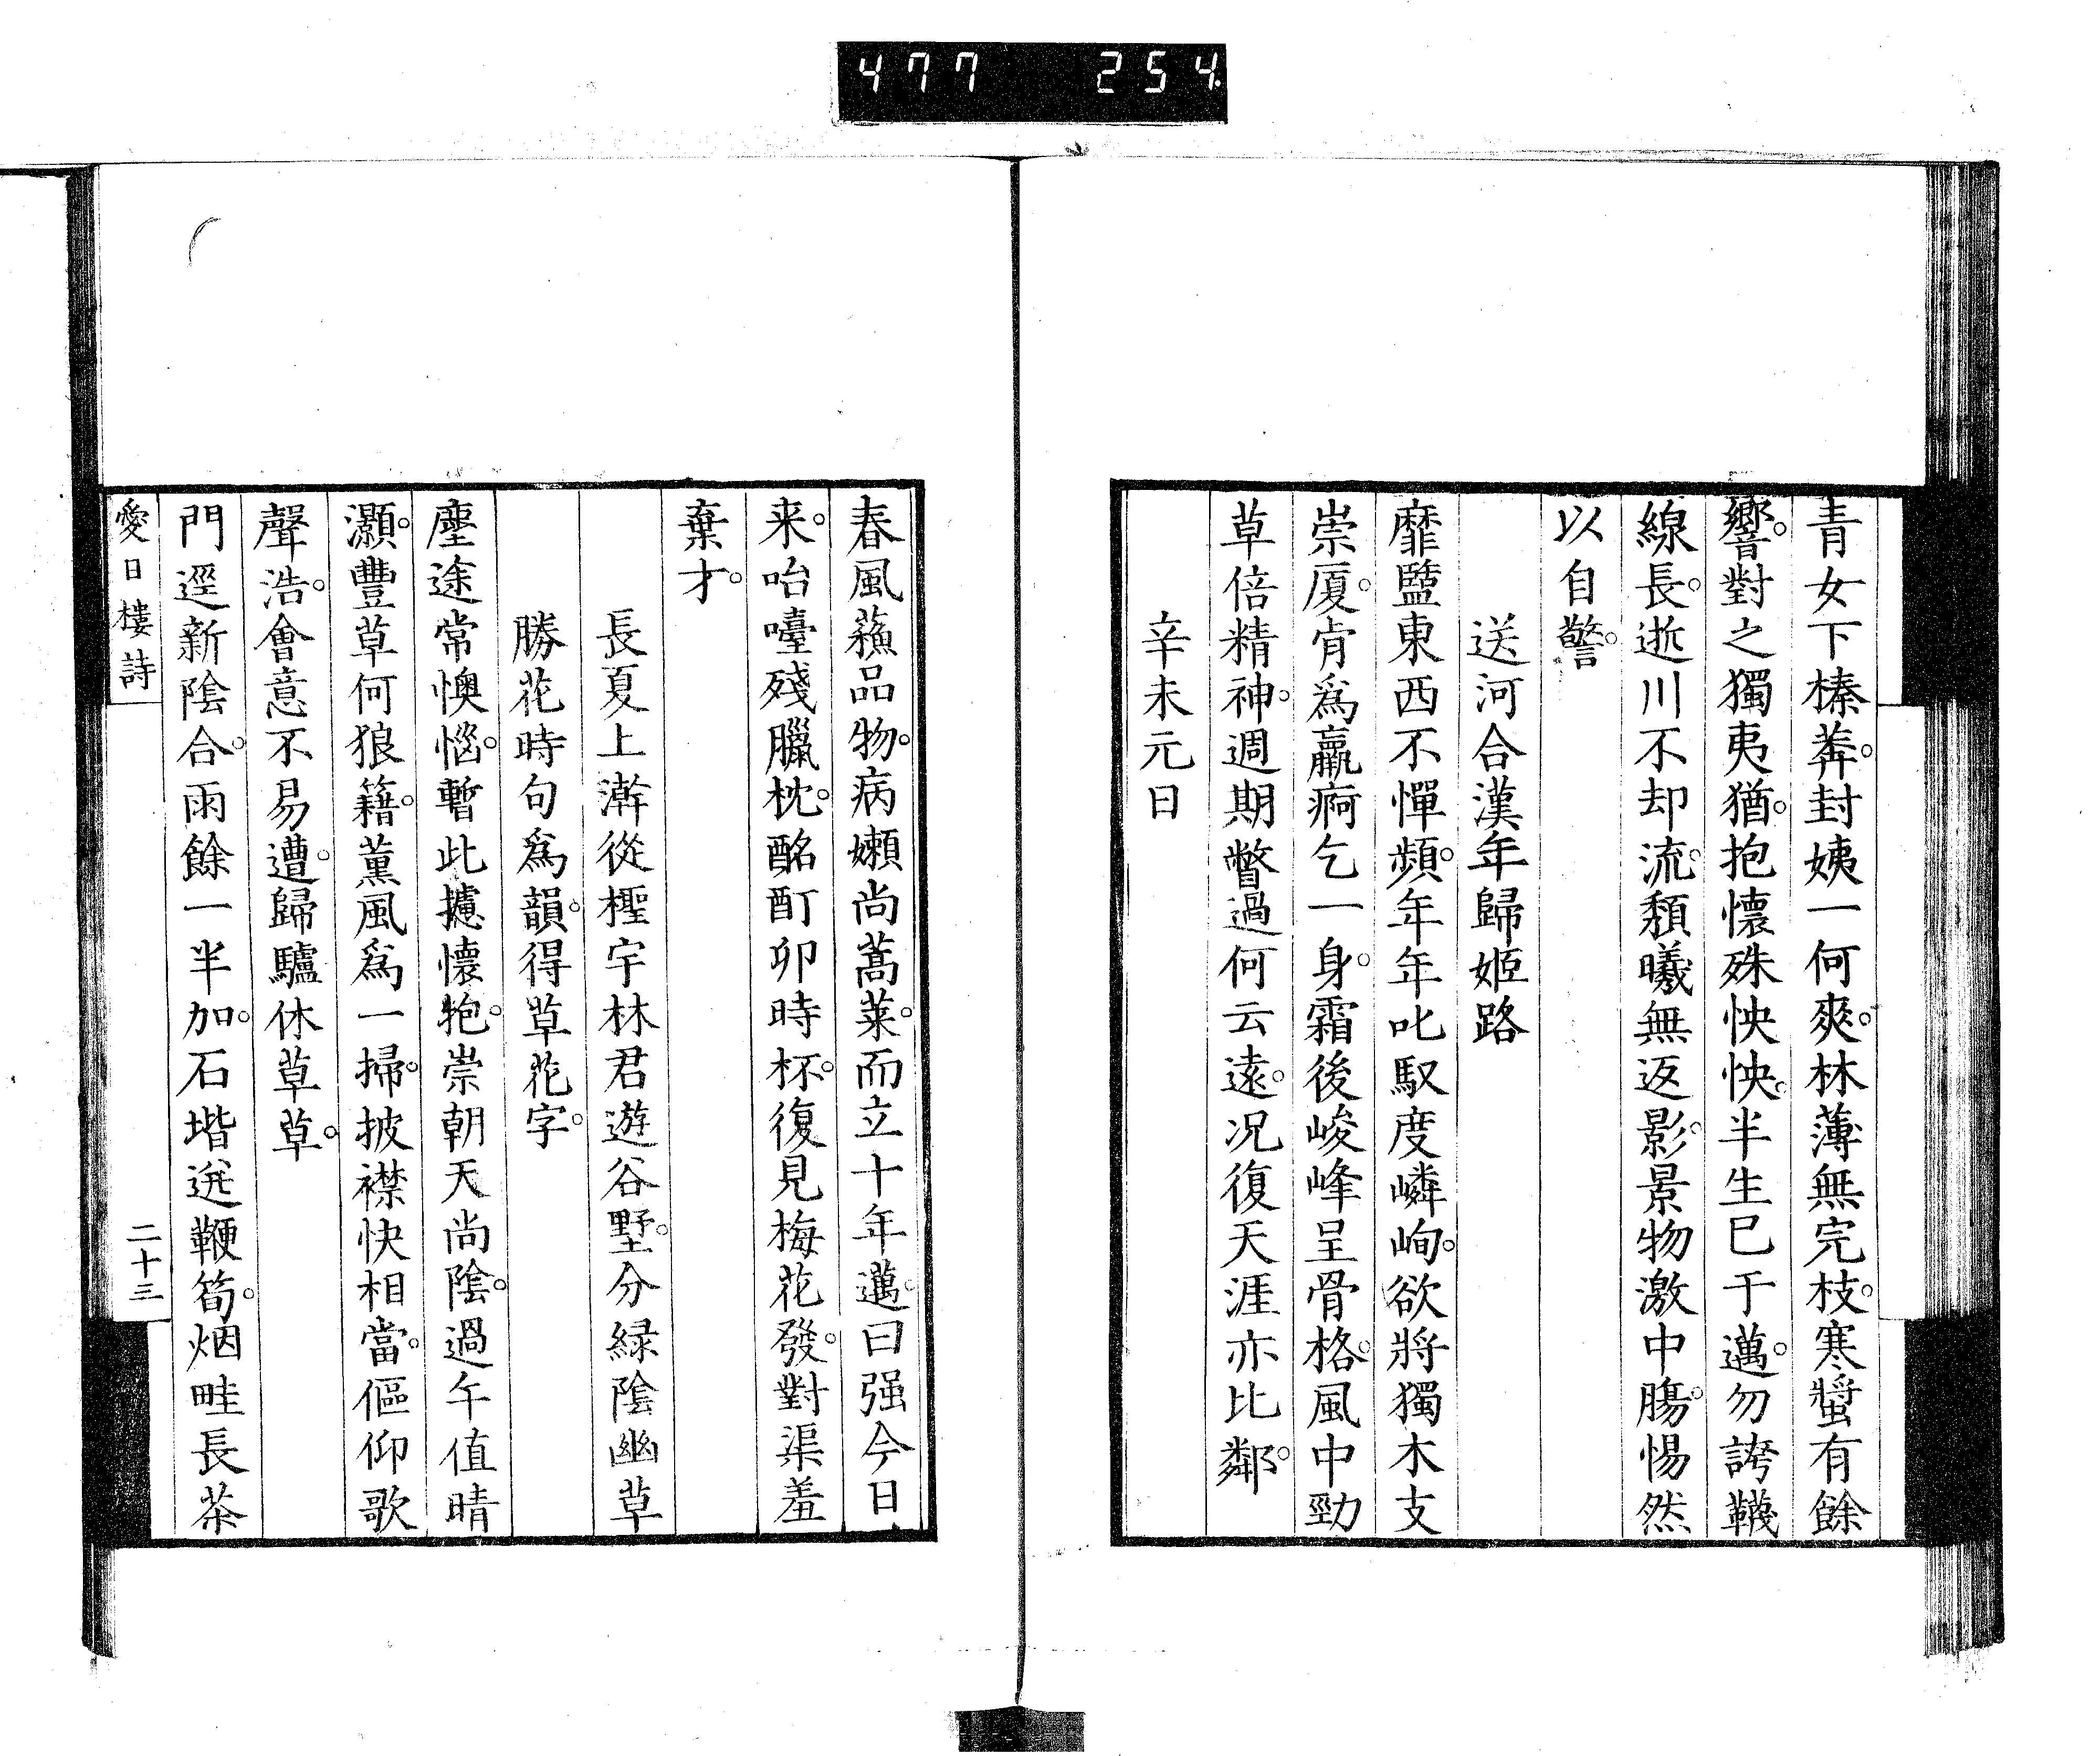 477 254
青女下榛莽。封姨一何爽。林薄無完枝。寒螿有餘
響。對之獨夷猶。抱懷殊怏怏。半生已于邁。勿誇韈
線長。逝川不却流。頹曦無返影。景物激中膓。惕然
以自警。
送河合漢年歸姬路
靡盬東西不憚頻。年年叱馭度嶙峋。欲將獨木支
崇厦。肯爲羸痾乞一身。霜後峻峰呈骨格。風中勁
草倍精神。週期瞥過何云遠。况復天涯亦比鄰。
辛未元日
春風蘓品物。病嬾尚蒿莱。而立十年邁。曰强今日
来。咍嚏殘臘枕。酩酊卯時杯。復見梅花發。對渠羞
棄才。
長夏上澣從檉宇林君遊谷墅。分緑陰幽草
勝花時句爲韻。得草花字。
塵途常懊惱。暫此攄懷抱。崇朝天尚陰。過午值晴
灝。豐草何狼籍。薫風爲一掃。披襟快相當。傴仰歌
聲浩。會意不易遭。歸驢休草草。
門逕新陰合。雨餘一半加。石堦迸鞭筍。烟畦長茶
愛日樓詩
二十三